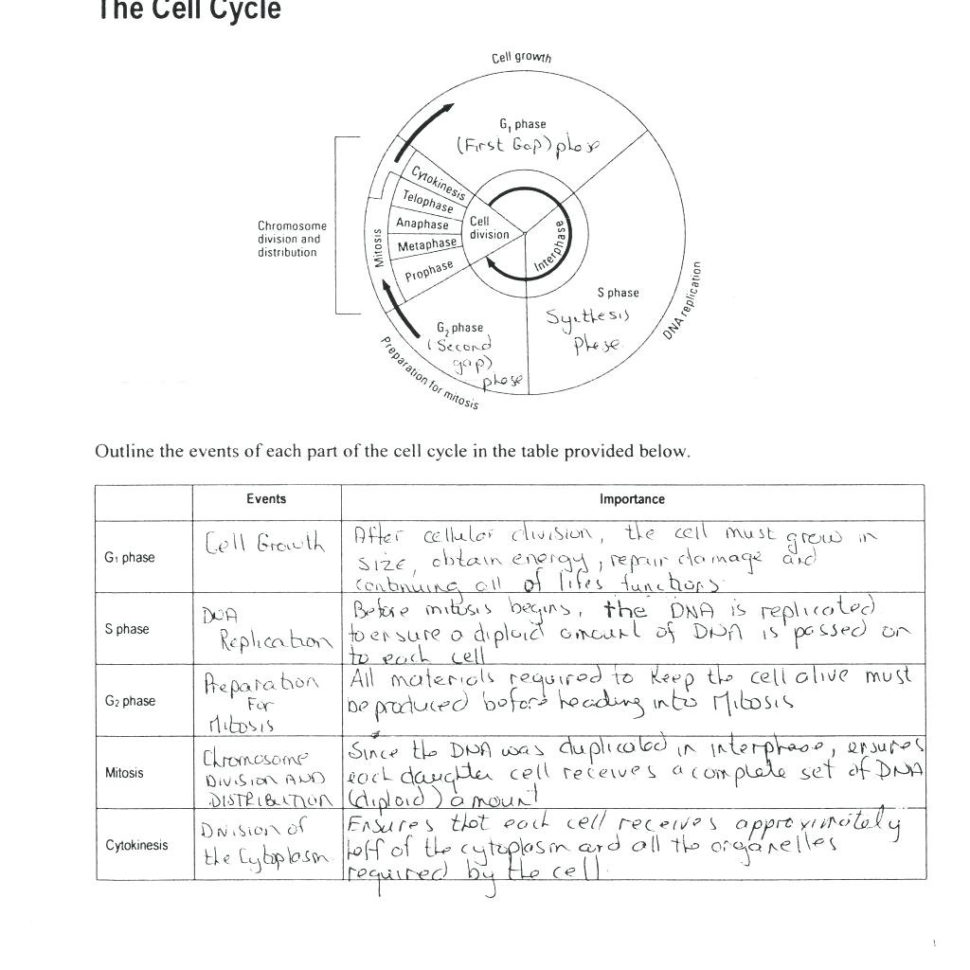 The Cell Cycle
Cell growth
G₁ phase
(First Gap) phase
Cytokinesis
Telophase
Anaphase
Metaphase
Prophase
Mitosis
Cell
division
Interphase
Chromosome
division and
distribution
S phase
Synthesis
Phase
DNA replication
G₂ phase
(Second
gap)
phase
Preparation for mitosis
Outline the events of each part of the cell cycle in the table provided below.
Events
Importance
G₁ phase
Cell Growth
After cellular division, the cell must grow in
size, obtain energy, repair damage and
continuing all of lifes functions
S phase
DNA
Replication
Before mitosis begins, the DNA is replicated
to ensure a diploid amount of DNA is passed on
to each cell
G₂ phase
Preparation
For
Mitosis
All materials required to keep the cell alive must
be produced before heading into Mitosis
Mitosis
Chromosome
DIVISION AND
DISTRIBUTION
Since the DNA was duplicated in interphase, ensures
each daughter cell receives a complete set of DNA
(diploid) amount
Cytokinesis
Division of
the Cytoplasm
Ensures that each cell receives approximately
half of the cytoplasm and all the organelles
required by the cell